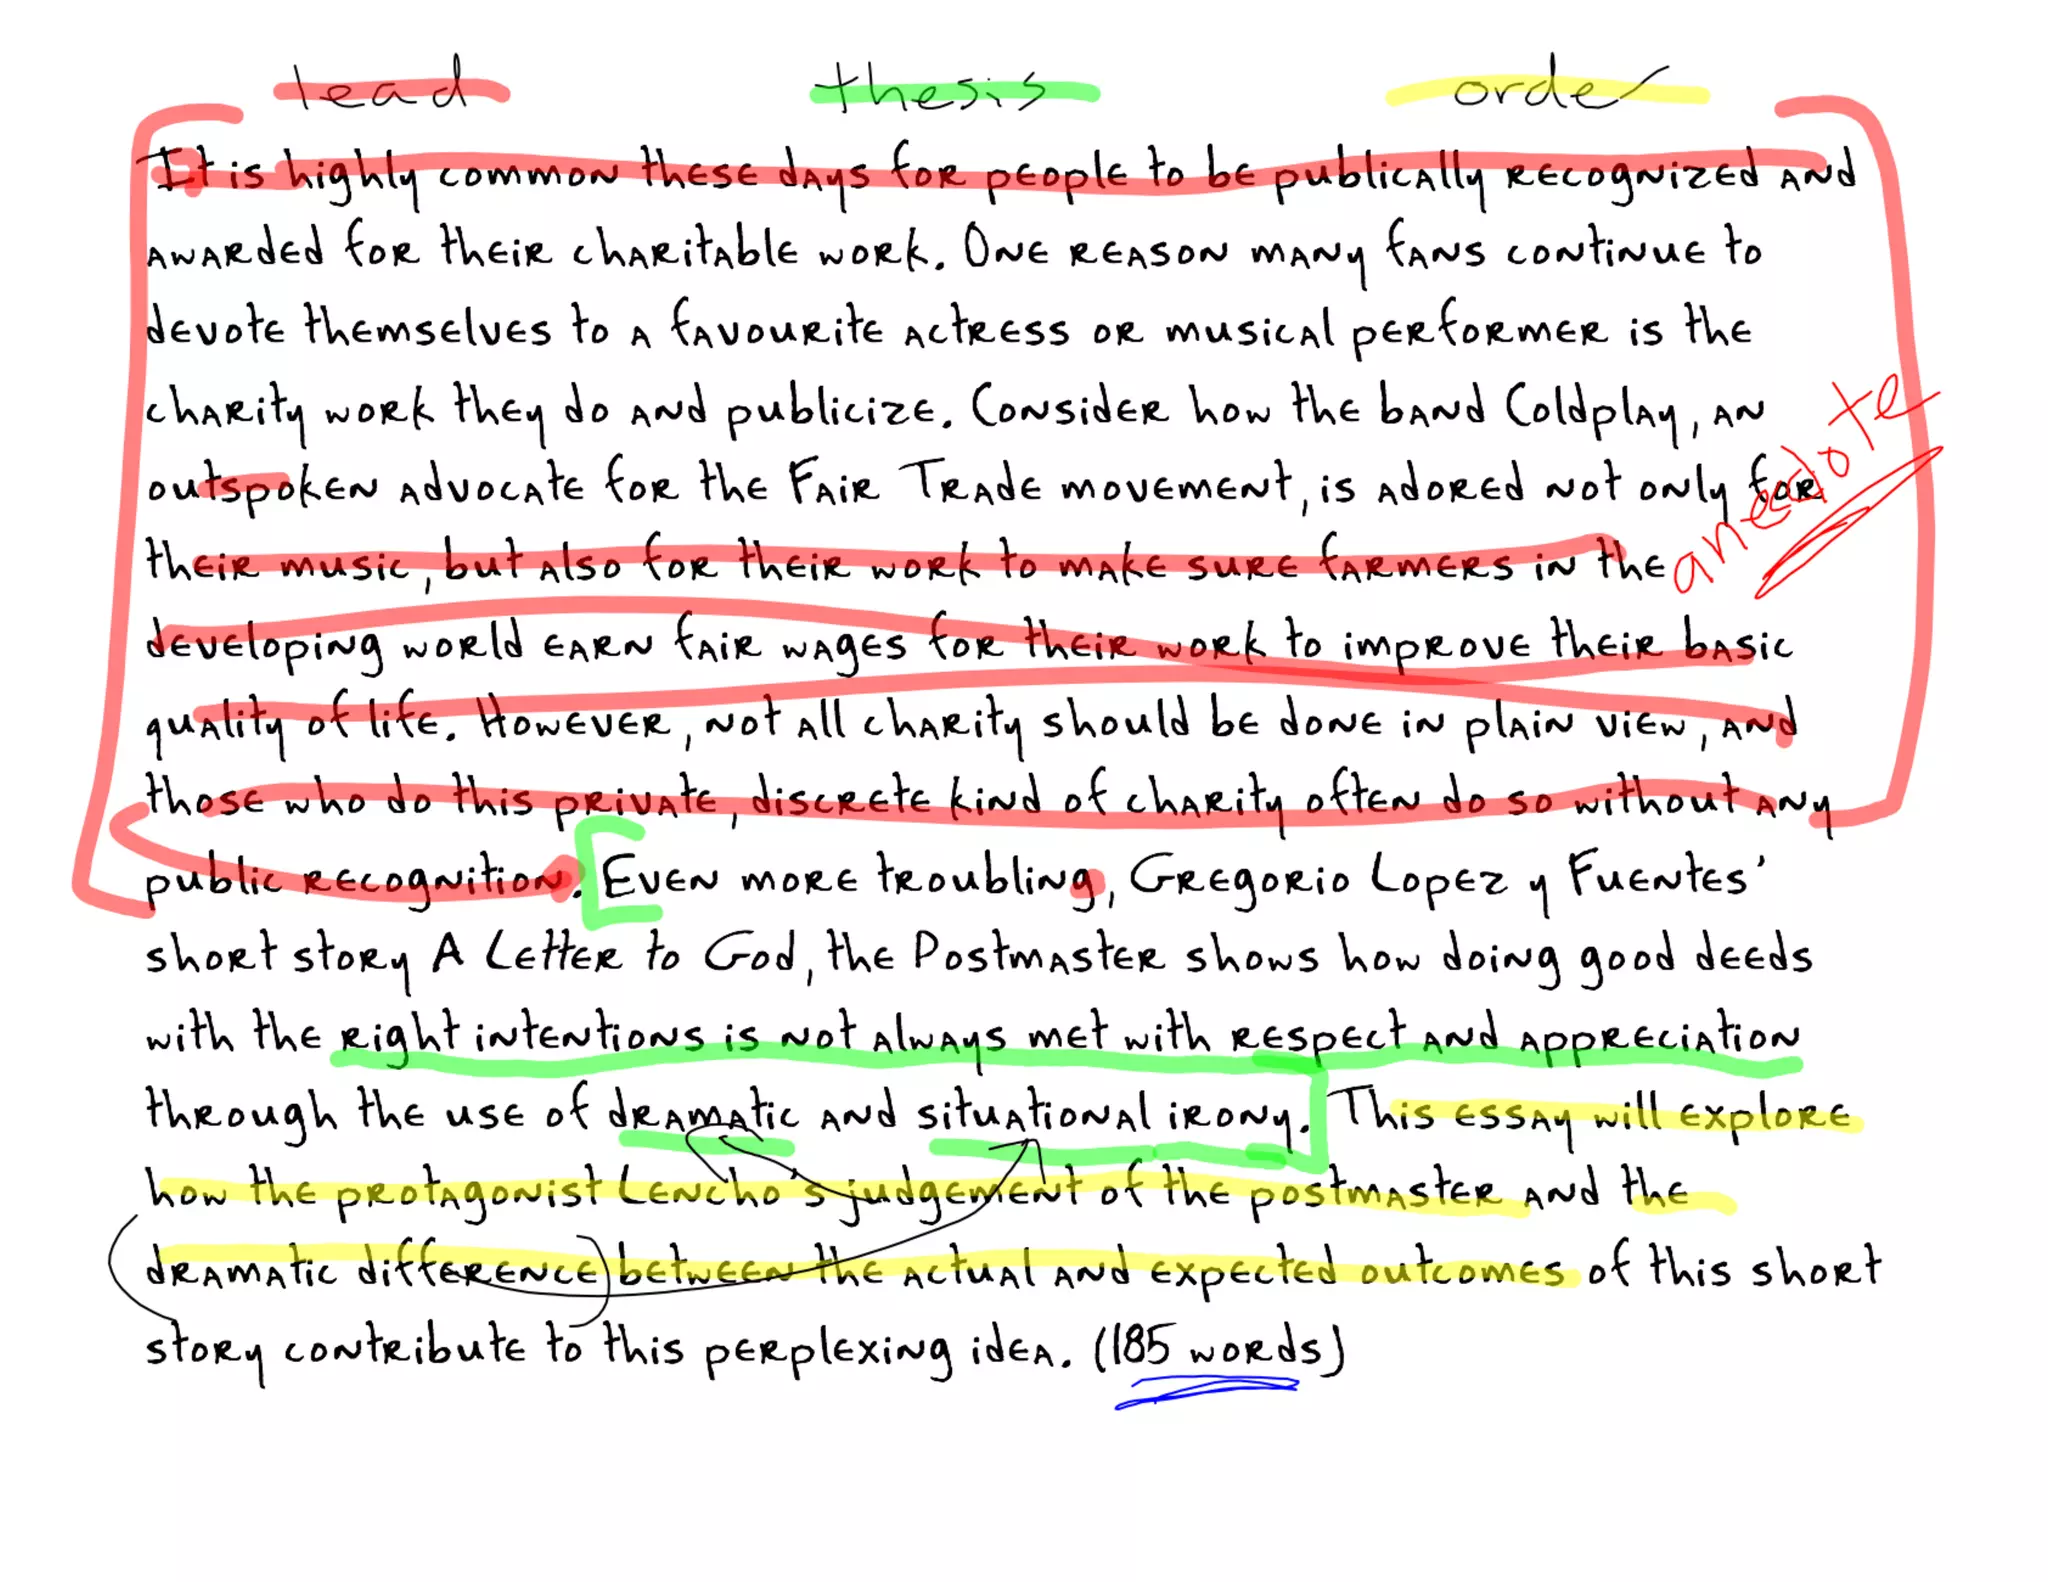 lead thesis order
It is highly common these days for people to be publically recognized and
awarded for their charitable work. One reason many fans continue to
devote themselves to a favourite actress or musical performer is the
charity work they do and publicize. Consider how the band Coldplay, an
outspoken advocate for the Fair Trade movement, is adored not only for
anecdote
their music, but also for their work to make sure farmers in the
developing world earn fair wages for their work to improve their basic
quality of life. However, not all charity should be done in plain view, and
those who do this private, discrete kind of charity often do so without any
public recognition. Even more troubling, Gregorio Lopez y Fuentes'
short story A Letter to God, the Postmaster shows how doing good deeds
with the right intentions is not always met with respect and appreciation
through the use of dramatic and situational irony. This essay will explore
how the protagonist Lencho's judgement of the postmaster and the
dramatic difference between the actual and expected outcomes of this short
story contribute to this perplexing idea. (185 words)